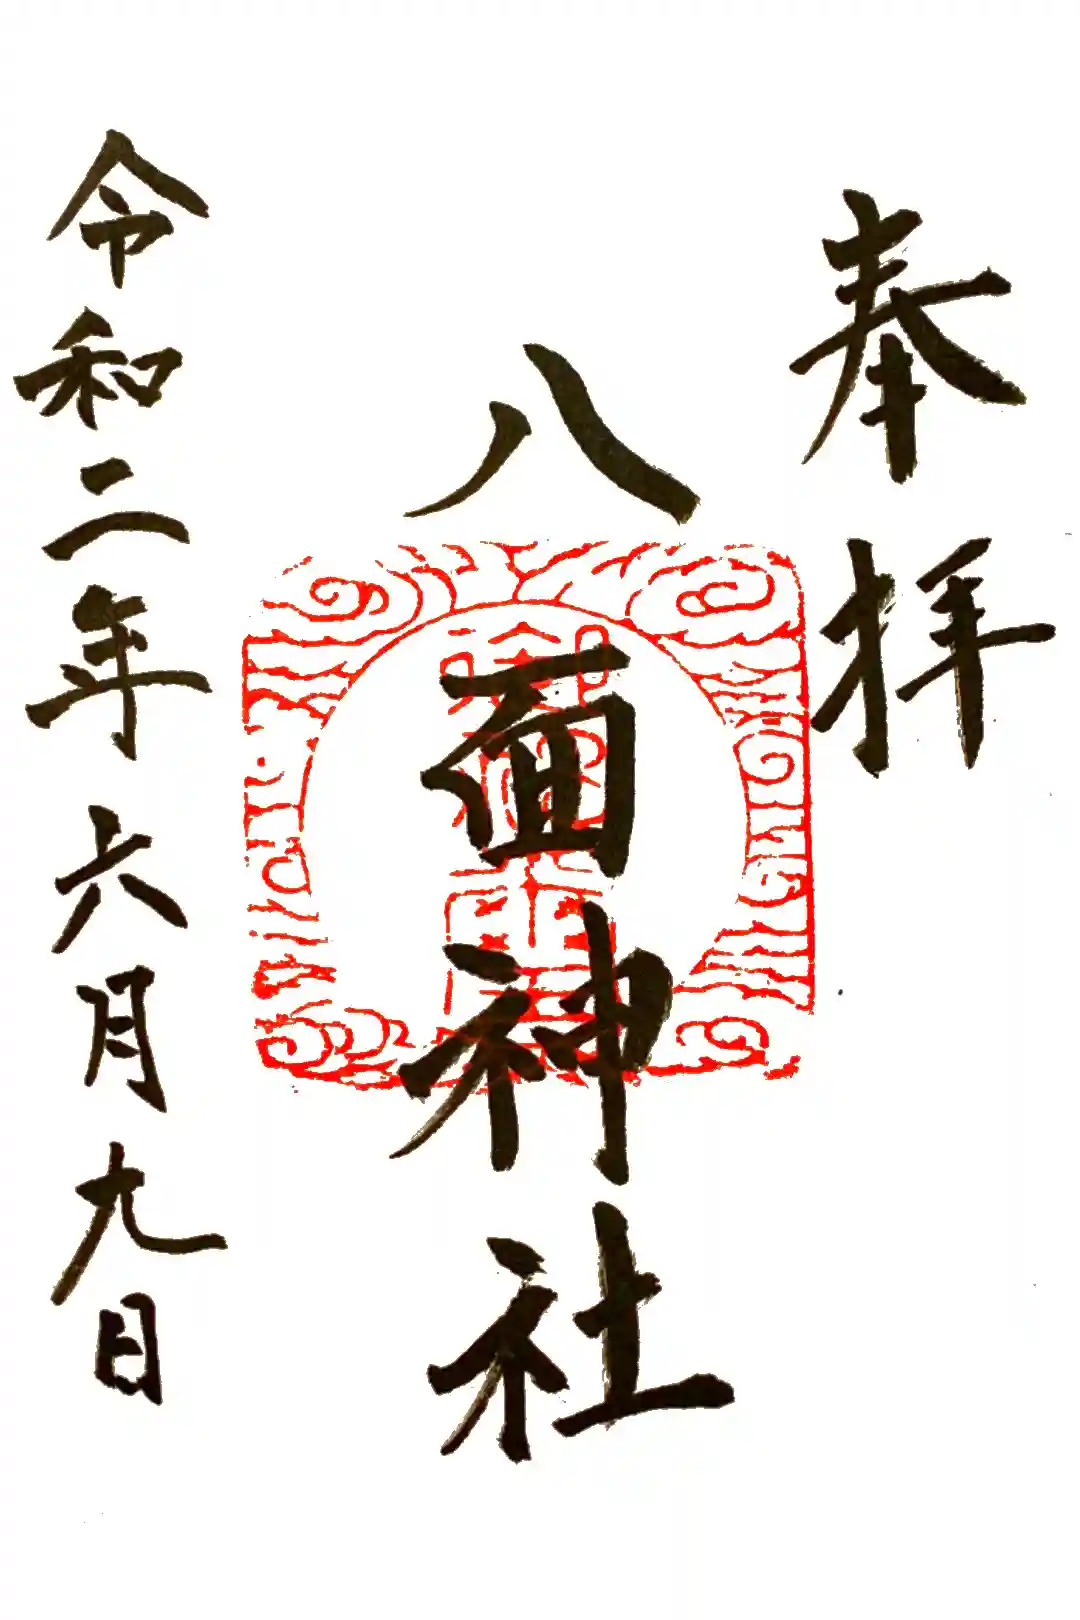 奉拝
八面神社
令和二年六月九日